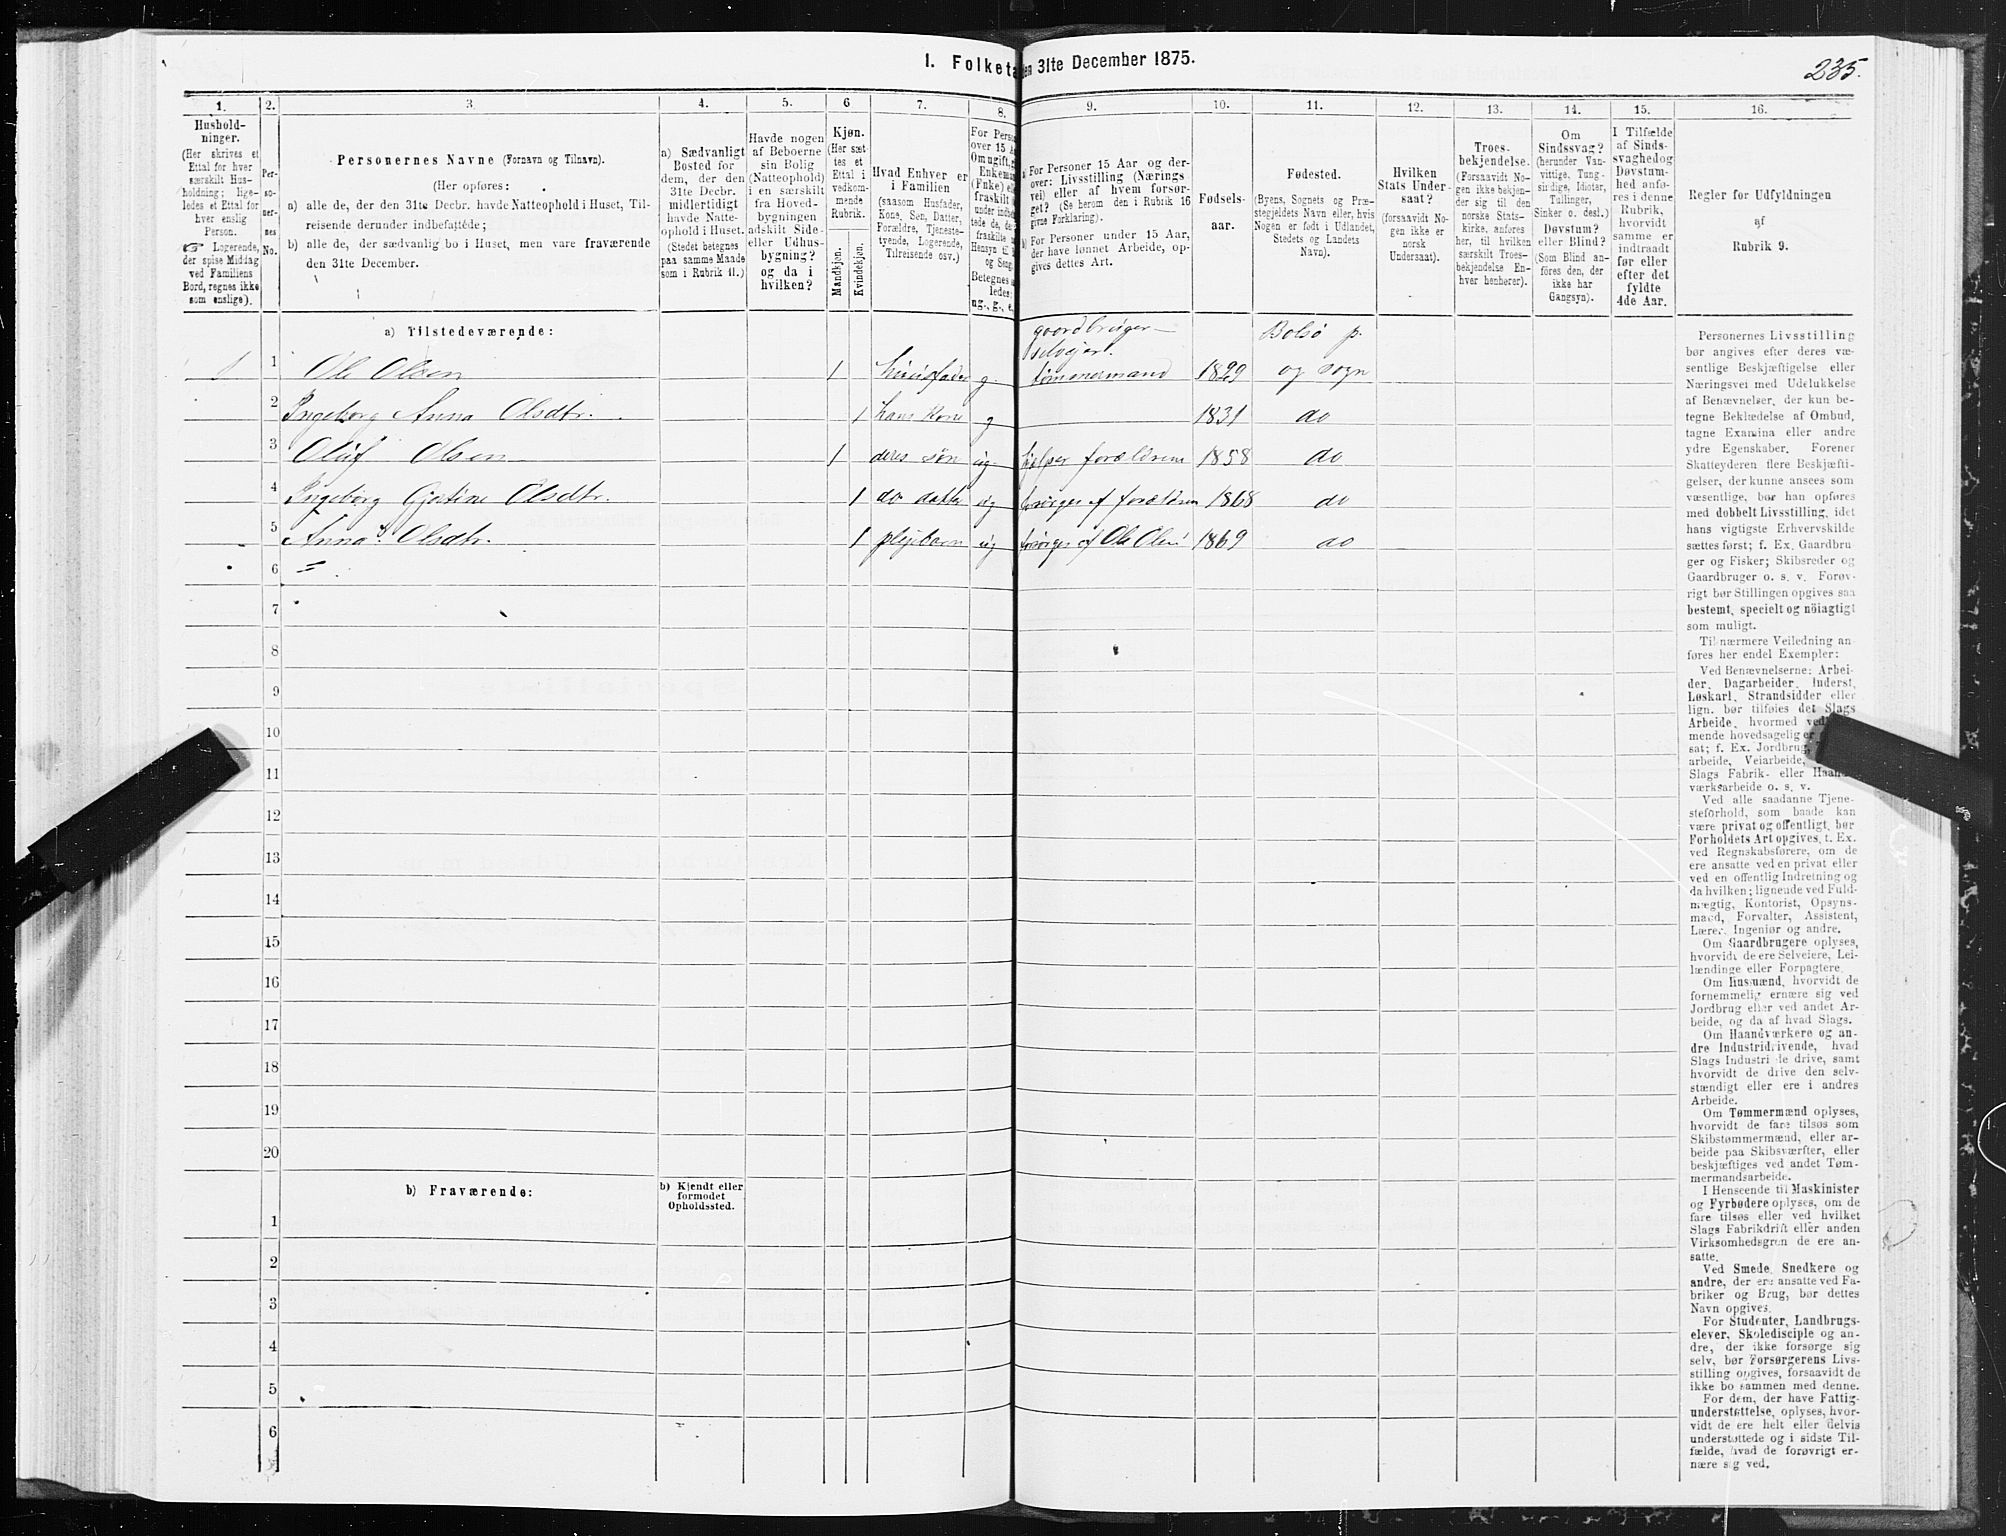 I. Folketa en 31te December 1875.
235.
1. 2. 3. 4. 5. 6 7. 8. 9. 10. 11. 12. 13. 14. 15. 16.
Hushold-
ninger.
(Her skrives et
Ettal for hver
særskilt Hus-
holdning; lige-
ledes et Ettal for
hver enslig
Person.
☞ Logerende,
der spise Middag
ved Familiens
Bord, regnes ikke
som enslige).
Per-
so-
ner-
nes
No.
Personernes Navne (Fornavn og Tilnavn).
(Her opføres:
a) alle de, der den 31te Decbr. havde Natteophold i Huset, Til-
reisende derunder indbefattede;
b) alle de, der sædvanlig bo i Huset, men vare fraværende
den 31te December.
a) Sædvanligt
Bosted for
dem, der den
31te Decbr.
midlertidigt
havde Natte-
ophold i Huset.
(Stedet betegnes
paa samme Maade
som i Rubrik 11.)
Havde nogen
af Beboerne
sin Bolig
(Natteophold)
i en særskilt
fra Hoved-
bygningen
adskilt Side-
eller Udhus-
bygning?
og da i
hvilken?
Kjøn.
(Her sæt-
tes et
Ettal i
vedkom-
mende
Rubrik.
Mandkjøn.
Kvindekjøn.
Hvad Enhver er
i Familien
(saasom Husfader,
Kone, Søn, Datter,
Forældre, Tjeneste-
tyende, Logerende,
Tilreisende osv.)
For Perso
over 15 A
Om ugift,
Enkema
(Fnke) el
fraskilt
under indbe
tede de, de
fraskilte
Hensyn til
og Seng.
Betegnes
ledes:
ug., g., e.
a) For Personer 15 Aar og der-
over: Livsstilling (Nærings
vei) eller af hvem forsør-
get? (Se herom den i Rubrik 16
givne Forklaring).
b) For Personer under 15 Aar,
der have lønnet Arbeide, op-
gives dettes Art.
Fødsels-
aar.
Fødested.
(Byens, Sognets og Præ-
stegjeldets Navn eller, hvis
Nogen er født i Udlandet,
Stedets og Landets
Navn).
Hvilken
Stats Under-
saat?
(forsaavidt No-
gen ikke er
norsk
Undersaat).
Troes-
bekjendelse.
(Forsaavidt No-
gen ikke bekjen-
der sig til den
norske Stats-
kirke, anføres
her, til hvilken
særskilt Troes-
bekjendelse En-
hver henhører).
Om
Sindssvag?
(herunder Van-
vittige, Tung-
sindige, Idioter,
Tullinger,
Sinker o. desl.)
Døvstum?
eller Blind?
(Som Blind an-
føres den, der
ikke har
Gangsyn).
I Tilfælde
af Sinds-
svaghedog
Døvstum-
hed anfø-
res i denne
Rubrik,
hvorvidt
samme er
indtraadt
før eller
efter det
fyldte
4de Aar.
Regler før Udfyldningen
af
Rubrik 9.
a) Tilstedeværende:
gaardbruger
selveier.
Bolsö p.
1 1 Ole Olsen 1 huusfader g. tømmermand 1829 og sogn
2 Ingeborg Anna Olsdtr. 1 hans Kone g 1831 do
3 Oluf Olsen 1 deres søn ug. hjelper forældrene 1858 do
4 Ingeborg Gjertine Olsdtr. 1 do datter ug forsørges af forældren 1868 do
5 Anna Olsdtr. 1 plejebarn ug forsørges af Ole Olsen 1869 do
6
7
8
9
10
11
12
13
14
15
16
17
18
19
20
b) Fraværende:
b) Kjendt eller
formodet
Opholdssted.
1
2
3
4
5
6
Personernes Livsstilling
bør angives efter deres væ-
sentlige Beskjæftigelse eller
Næringsvei med Udelukkelse
af Benævnelser, der kun be-
tegne Beklædelse af Ombud,
tagne Examina eller andre
ydre Egenskaber. Forener
Skatteyderen flere Beskjæfti-
gelser, der kunne ansees som
væsentlige, bør han opføres
med dobbelt Livsstilling, idet
hans vigtigste Erhvervskilde
sættes først; f. Ex. Gaardbru-
ger og Fisker; Skibsreder og
Gaardbruger o. s. v. Forøv-
rigt bør Stillingen opgives saa
bestemt, specielt og nöiagtigt
som muligt.
Til nærmere Veiledning an-
føres her endel Exempler:
Ved Benævnelserne: Arbei-
der, Dagarbeider, Inderst,
Løskarl, Strandsidder eller
lign. bør tilføies det Slags
Arbeide, hvormed ved
mende hovedsagelig er
sat; f. Ex. Jordbrug,
arbeide, Veiarbeide,
Slags Fabrik- eller Haand-
værksarbeide o. s. v.
Ved alle saadanne Tjene-
steforhold, som baade kan
være privat og offentligt, bør
Forholdets Art opgives, t. Ex.
ved Regnskabsførere, om de
ere ansatte ved en privat eller
ved en offentlig Indretning og
da hvilken; lignende ved Fuld-
mægtig, Kontorist, Opsyns-
mand, Forvalter, Assistent,
Lærer, Ingeniør og andre.
Om Gaardbrugere oplyses,
hvorvidt de ere Selveiere, Lei-
lændinge eller Forpagtere.
Om Husmænd, hvorvidt de
fornemmelig ernære sig ved
Jordbrug eller ved andet Ar-
beide, og da af hvad Slags.
Om Haandværkere og an-
dre Industridrivende, hvad
Slags Industri de drive, samt
hvorvidt de drive den selv-
stændigt eller ere i andres
Arbeide.
Om Tømmermænd oplyses,
hvorvidt de fare tilsøs som
Skibstømmermænd, eller ar-
beide paa Skibsværfter, eller
beskjæftiges ved andet Tøm-
mermandsarbeide.
I Henseende til Maskinister
og Fyrbødere oplyses, om de
fare tilsøs eller ved hvilket
Slags Fabrikdrift eller anden
Virksomhedsgren de ere an-
satte.
Ved Smede, Snedkere og
andre, der ere ansatte ved Fa-
briker og Brug, bør dettes
Navn opgives.
For Studenter, Landbrugs-
elever, Skoledisciple og an-
dre, der ikke forsørge sig
selv, bør Forsørgerens Livs-
stilling opgives, forsaavidt de
ikke bo sammen med denne.
For dem, der have Fattig-
understøttelse, oplyses, hvor-
vidt de ere helt eller delvis
understøttede og i sidste Til-
fælde, hvad de forøvrigt er-
nære sig ved.